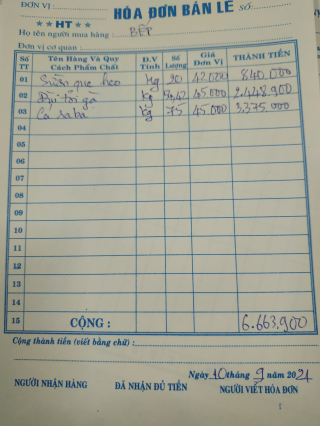 ĐƠN VỊ:
HÓA ĐƠN BÁN LẺ Số:
★★ HT ★★
Họ tên người mua hàng: BẾP
Đơn vị cơ quan:
Số TT Tên Hàng Và Quy Cách Phẩm Chất Đ.V Tính Số Lượng Giá Đơn Vị THÀNH TIỀN
01 Sườn que heo Kg 20 42000 840.000
02 Đùi tỏi gà Kg 54,42 45.000 2.448.900
03 Cá saba Kg 75 45.000 3.375.000
04
05
06
07
08
09
10
11
12
13
14
15 CỘNG : 6.663.900
Cộng thành tiền (viết bằng chữ) :
Ngày 10 tháng 9 năm 2021
NGƯỜI NHẬN HÀNG ĐÃ NHẬN ĐỦ TIỀN NGƯỜI VIẾT HÓA ĐƠN